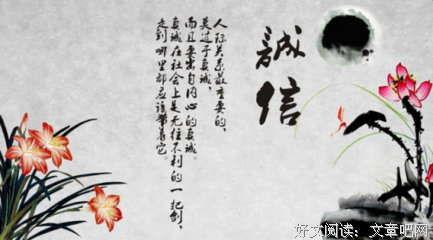 誠信
人际关系最重要的，
莫过于真诚，
而且要出自内心的真诚。
真诚在社会上是无往不利的一把剑，
走到哪里都应该带着它。
好文阅读：文章吧网